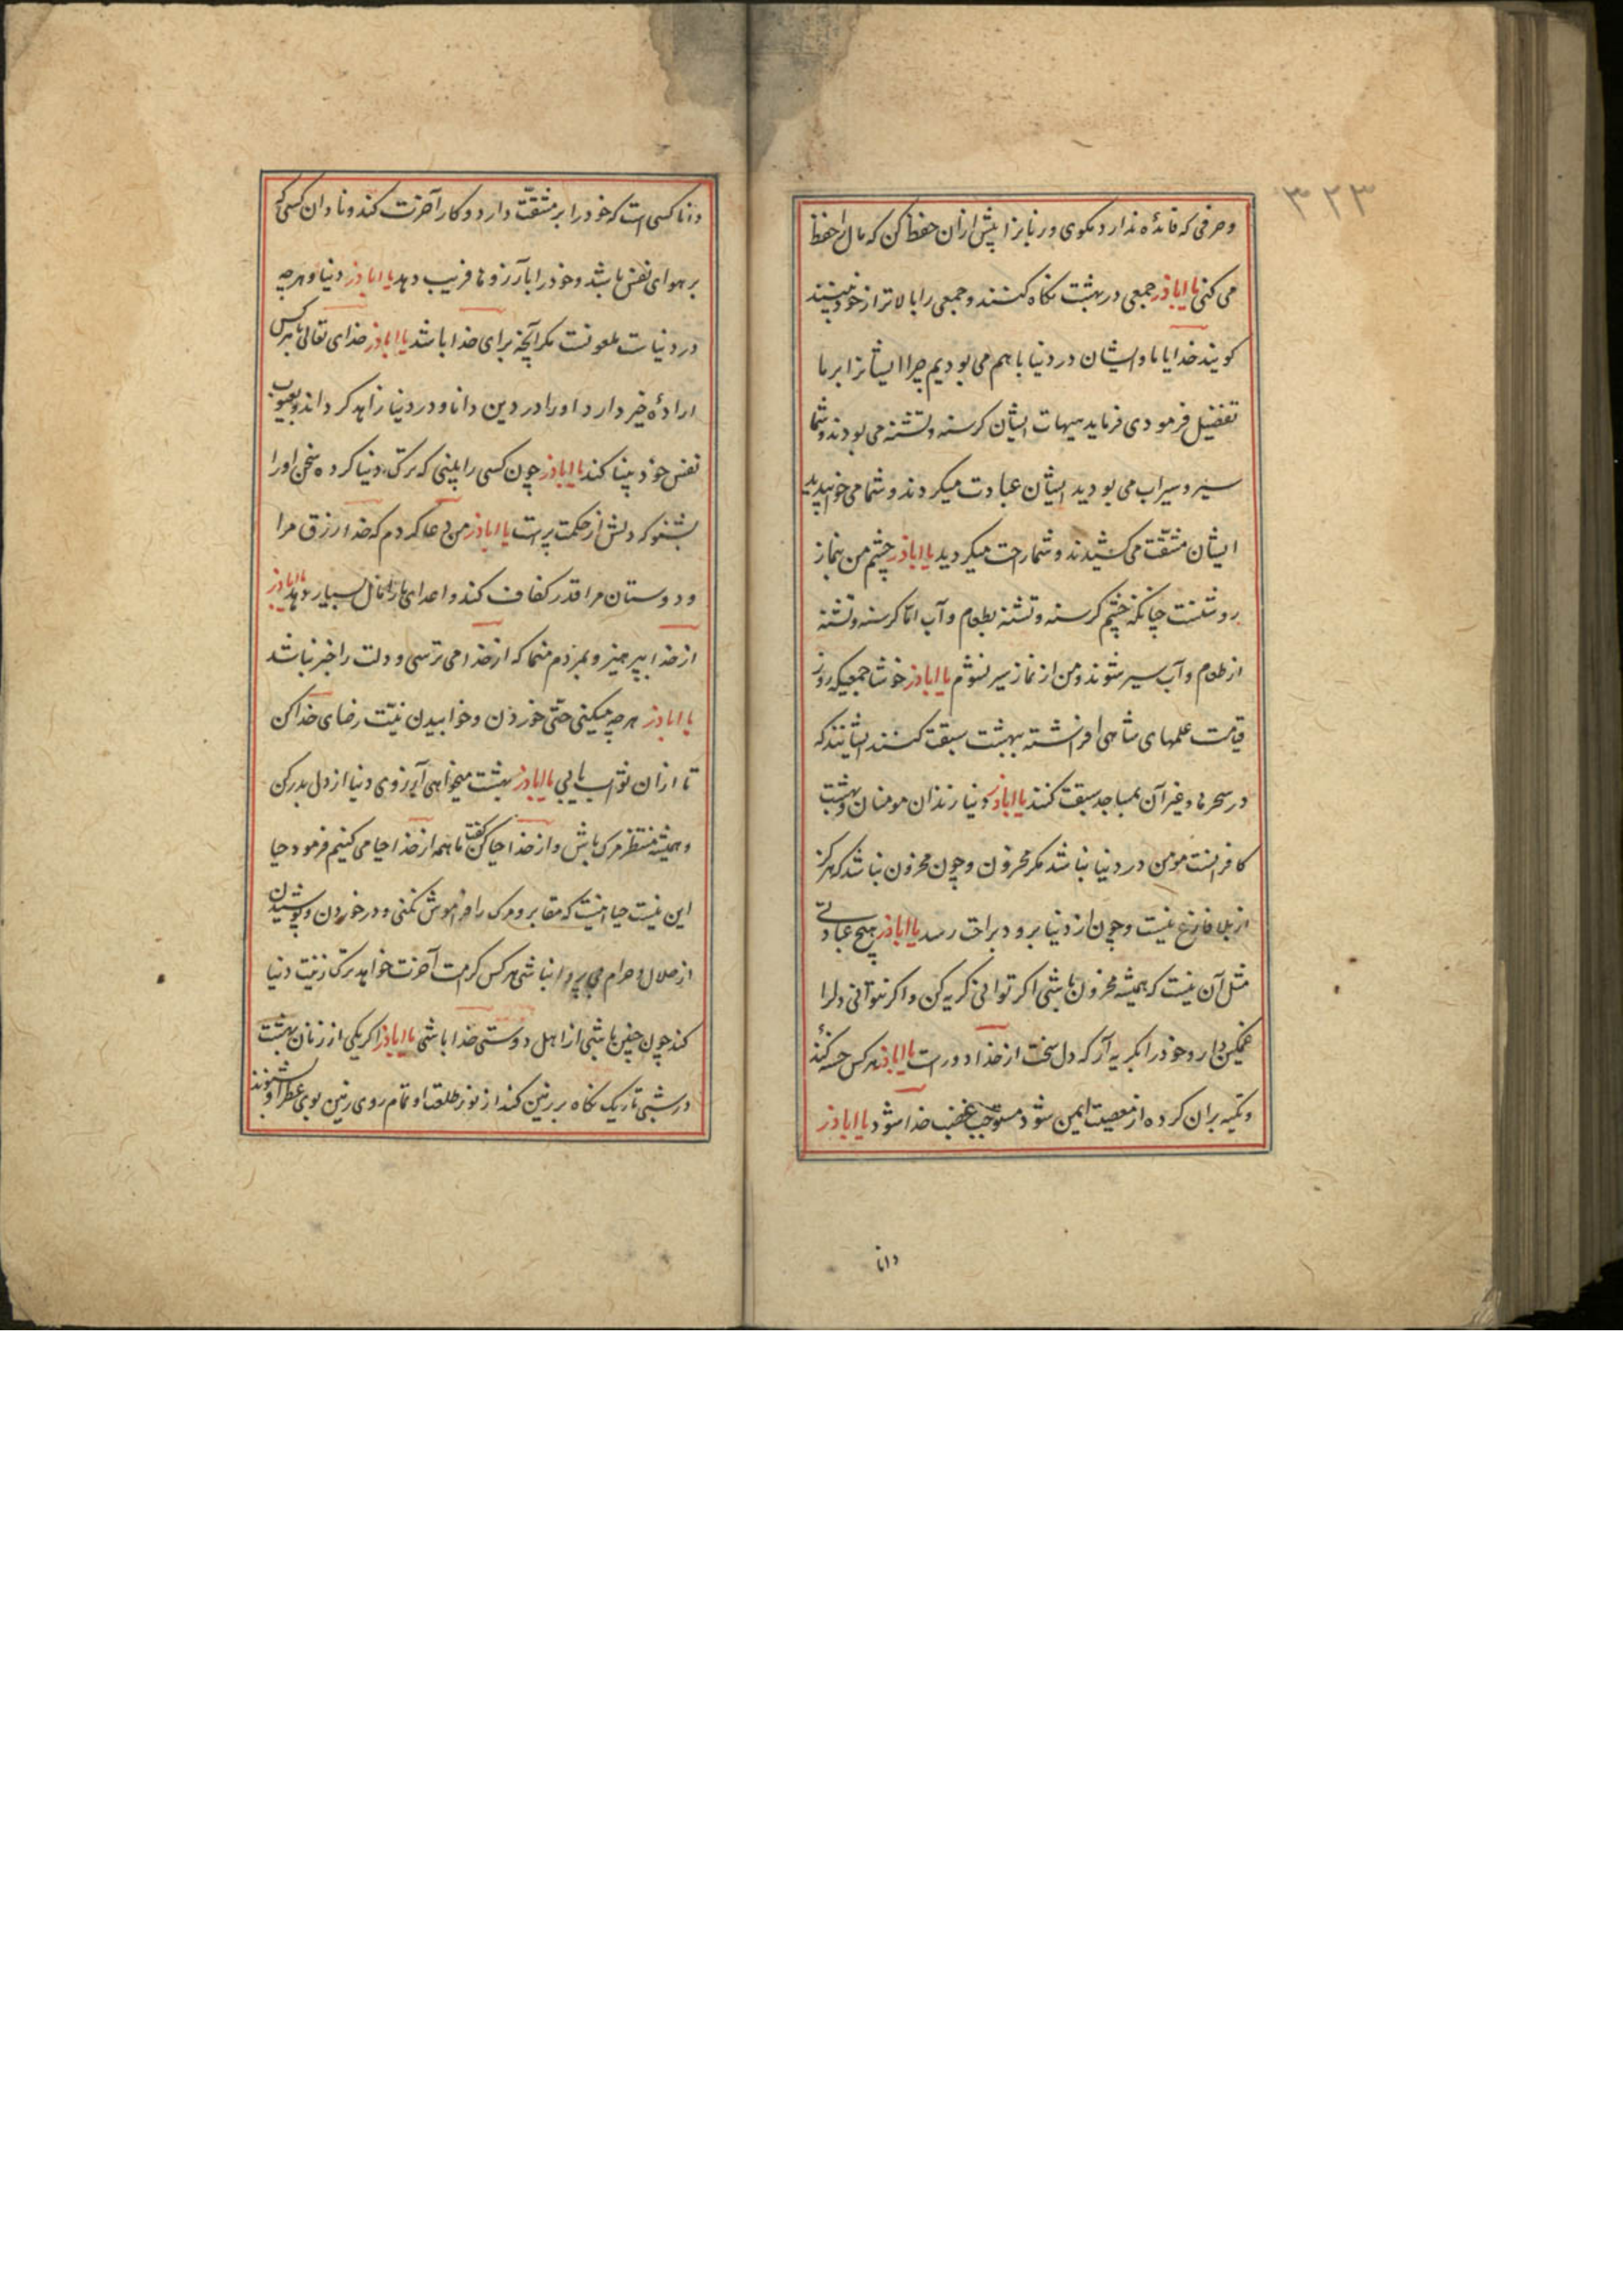 ۳۲۳
و حرفی که فائدهٔ ندارد مکوی و زبانرا پیش ازان حفظ کن که مال را حفظ
می کنی یا اباذر جمعی در بهشت نکاه کنند و جمعی را بالاتر از خود بینند
کویند خدایا ما و ایشان در دنیا با هم می بودیم چرا ایشانرا بر ما
تفضیل فرمودی فرماید هیهات ایشان کرسنه و تشنه می بودند و شما
سیر و سیراب می بودید ایشان عبادت میکردند و شما می خوابیدید
ایشان مشقّت می کشیدند و شما راحت میکردید یا اباذر چشم من بنماز
روشنست چنانکه چشم کرسنه و تشنه بطعام و آب امّا کرسنه و تشنه
از طعام و آب سیر شوند و من از نماز سیر نشوم یا اباذر خوشا جمعیکه روز
قیامت علمهای شاهی افراشته ببهشت سبقت کنند ایشانند که
در سحرها و غیر آن بمساجد سبقت کنند یا اباذر دنیا زندان مومنان و بهشت
کافرانست مومن در دنیا نباشد مکر محزون و چون محزون نباشد که هرکز
از بلا فارغ نیست و چون از دنیا برود براحت رسد یا اباذر هیچ عبادتی
مثل آن نیست که همیشه محزون باشی اکر توانی کریه کن و اکر نتوانی دلرا
غمکین دار و خود را بکریه آر که دل سخت از خدا دور است یا اباذر هرکس حسنهٔ کند
و تکیه بران کرده از معصیت ایمن شود مستوجب غضب خدا شود یا اباذر
دانا
دانا کسی است که خود را بر مشقّت دارد و کار آخرت کند و نادان کسی که
بر هوای نفس باشد و خود را بآرزوها فریب دهد یا اباذر دنیا و هرچه
در دنیاست ملعونست مکر آنچه برای خدا باشد یا اباذر خدای تعالی بهر کس
ارادهٔ خیر دارد او را در دین دانا و در دنیا زاهد کرداند و بعیوب
نفس خود بینا کند یا اباذر چون کسی را بینی که ترک دنیا کرده سخن او را
بشنو که دلش از حکمت پر است یا اباذر من دعا کردم که خدا رزق مرا
و دوستان مرا قدر کفاف کند و اعدای ما را مال بسیار دهد یا اباذر
از خدا بپرهیز و بمردم منما که از خدا می ترسی و دلت را خبر نباشد
یا اباذر هرچه میکنی حتّی خوردن و خوابیدن نیّت رضای خدا کن
تا ازان ثواب یابی یا اباذر بهشت میخواهی آرزوی دنیا از دل بدر کن
و همیشه منتظر مرک باش و از خدا حیا کن کفت ما همه از خدا حیا می کنیم فرمود حیا
این نیست حیا اینست که مقابر و مرک را فراموش نکنی و در خوردن و پوشیدن
از حلال و حرام بی پروا نباشی هر کس کرامت آخرت خواهد ترک زینت دنیا
کند چون چنین باشی از اهل دوستی خدا باشی یا اباذر اکر یکی از زنان بهشت
در شبی تاریک نکاه بر زمین کند از نور طلعت او تمام روی زمین بوی عطر او شنوند